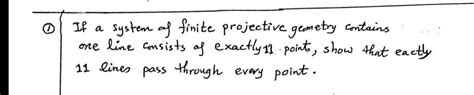 ① If a system of finite projective geometry contains
one line consists of exactly 11 point, show that eactly
11 lines pass through every point.